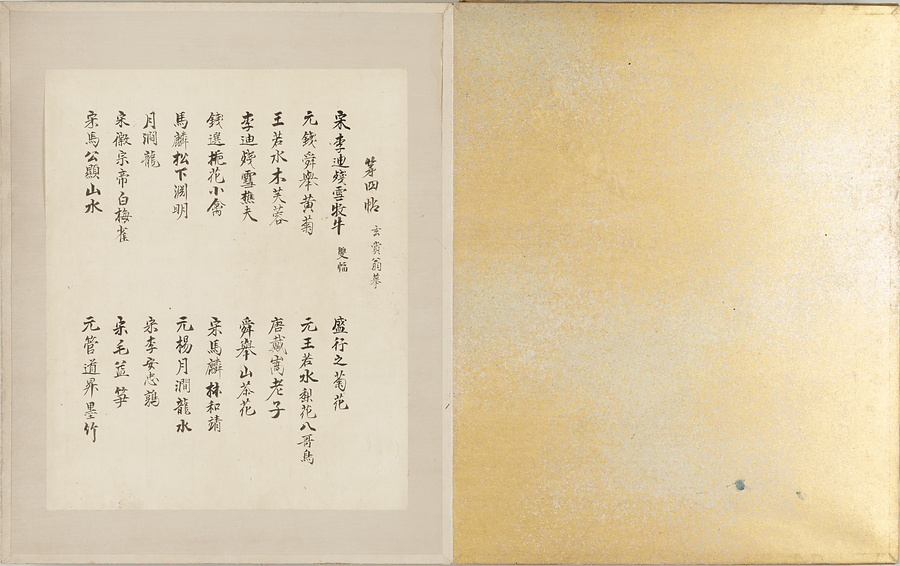 第四帖 玄賞翁摹
宋李迪殘雪牧牛 雙幅
元錢舜舉黃菊
王若水木芙蓉
李迪殘雪樵夫
錢選梔花小禽
馬麟松下淵明
月澗龍
宋徽宗帝白梅雀
宋馬公顯山水
盛行之菊花
元王若水梨花八哥鳥
唐戴嵩老子
舜舉山茶花
宋馬麟林和靖
元楊月澗龍水
宋李安忠鶉
宋毛益筝
元管道昇墨竹